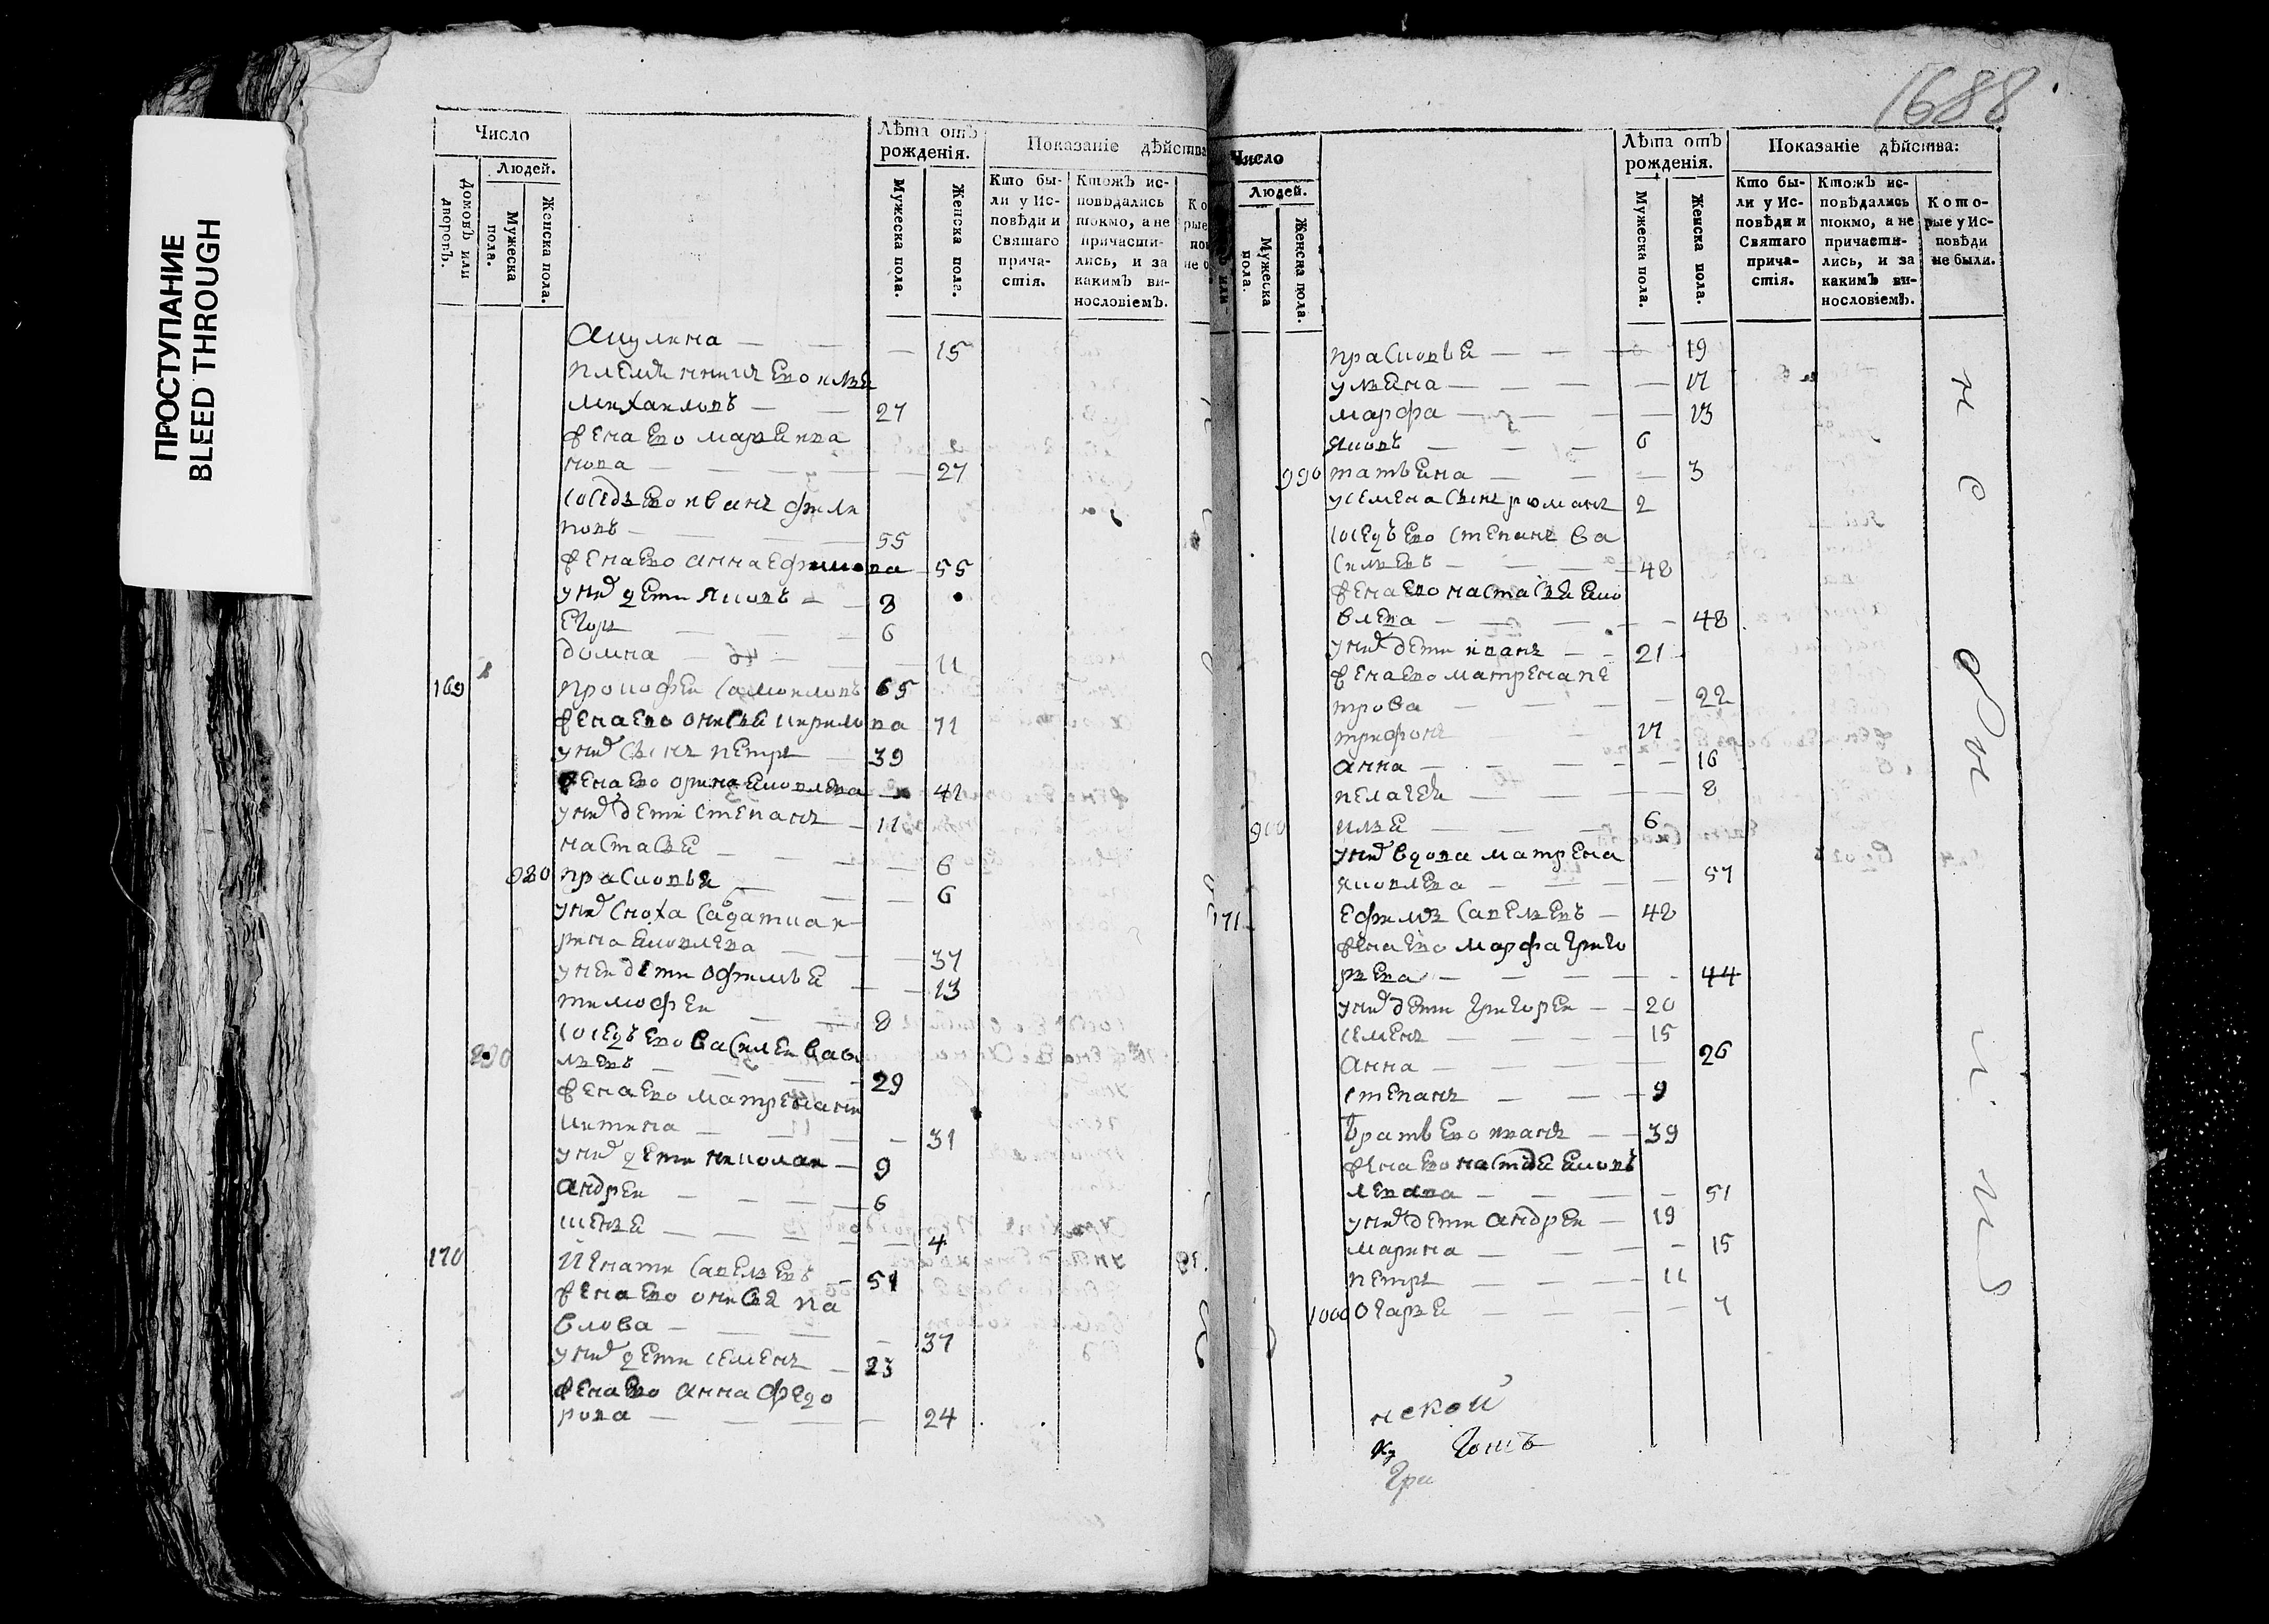 ПРОСТУПАНИЕ
BLEED THROUGH
Число
Людей.
Домовъ или дворовъ.
Мужеска пола.
Женска пола.
Лѣта отъ рожденія.
Мужеска пола.
Женска пола.
Показаніе дѣйства
Кто бы-
ли у Ис-
повѣди и
Святаго
прича-
стія.
Ктожъ ис-
повѣдались
токмо, а не
причасти-
лись, и за
какимъ ви-
нословіемъ.
Акулина — 15
племянникъ ево илья
михаиловъ — 27
жена ево марья ива
нова — 27
соседъ ево иванъ фили
повъ — 55
жена ево анна ефимова 55
у них дети яковъ — 8
Егоръ — 6
домна — 11
169 прокофеи самоиловъ 65
жена ево онисья кирилова 71
у них сынъ петръ — 39
жена ево орина яковлева 42
у них дети степанъ — 11
настасья — 6
980 прасковья — 6
у них сноха салдатка и
рина яковлева — 37
у неи дети офимья — 13
тимофеи — 8
соседъ ево василеи васи
льевъ — 29
жена ево матрена ни
китина — 31
у них дети николаи — 9
андреи — 6
4
170 савельевъ — 51
жена ево онисья па
влова — 37
у них дети семенъ — 23
жена ево анна федо
рова — 24
1688
Число
Людей.
Мужеска пола.
Женска пола.
Лѣта отъ рожденія.
Мужеска пола.
Женска пола.
Показаніе дѣйства:
Кто бы-
ли у Ис-
повѣди и
Святаго
прича-
стія.
Ктожъ ис-
повѣдались
токмо, а не
причасти-
лись, и за
какимъ ви-
нословіемъ.
Кото-
рые у Ис-
повѣди
не были.
прасковья — 19
ульяна — 17
марфа — 13
яковъ — 6
990 татьяна — 3
у семена сынъ романъ 2
соседъ ево степанъ ва
сильевъ — 48
жена ево настасья яко
влева — 48
у них дети иванъ — 21
жена ево матрена пе
трова — 22
трифонъ — 17
анна — 16
пелагея — 8
900 илья — 6
у них вдова матрена
яковлева — 57
171 ефимъ савельевъ — 42
жена ево марфа григо
рьева — 44
у них дети григореи — 20
семенъ — 15
анна — 26
степанъ — 9
братъ ево иванъ — 39
жена ево настасья яков
левана — 51
у них дети андреи — 19
марина — 15
петръ — 11
1000 огарья — 7
нской